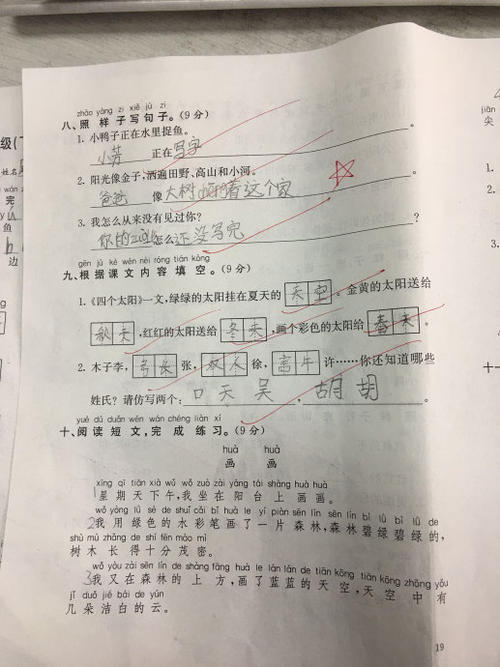 zhào yàng zi xiě jù zi
八、照 样 子 写 句 子。(9分)
1. 小鸭子正在水里捉鱼。
小芳 正在 写字 。
2. 阳光像金子,洒遍田野、高山和小河。
爸爸 像 大树 着这个家 。
3. 我怎么从来没有见过你?
你的 怎么还没写完
gēn jù kè wén nèi róng tián kòng
九、根据课文内容填空。(9分)
1.《四个太阳》一文,绿绿的太阳挂在夏天的 天空 。金黄的太阳送给
秋天 ,红红的太阳送给 冬天 ,画个彩色的太阳给 春天 。
2. 木子李, 弓长 张, 双人 徐, 言午 许……你还知道哪些
姓氏?请仿写两个: 口天吴 , 胡 。
yuè dú duǎn wén wán chéng liàn xí
十、阅读短文,完成练习。(9分)
huà huà
画 画
xīng qī tiān xià wǔ wǒ zuò zài yáng tái shàng huà huà
1 星期天下午,我坐在阳台上画画。
wǒ yòng lǜ sè de shuǐ cǎi bǐ huà le yí piàn sēn lín sēn lín bì lǜ bì lǜ de
2 我用绿色的水彩笔画了一片森林,森林碧绿碧绿的,
shù mù zhǎng de shí fēn mào mì
树木长得十分茂密。
wǒ yòu zài sēn lín de shàng fāng huà le lán lán de tiān kōng tiān kōng zhōng yǒu
3 我又在森林的上方,画了蓝蓝的天空,天空中有
jǐ duǒ jié bái de yún
几朵洁白的云。
19